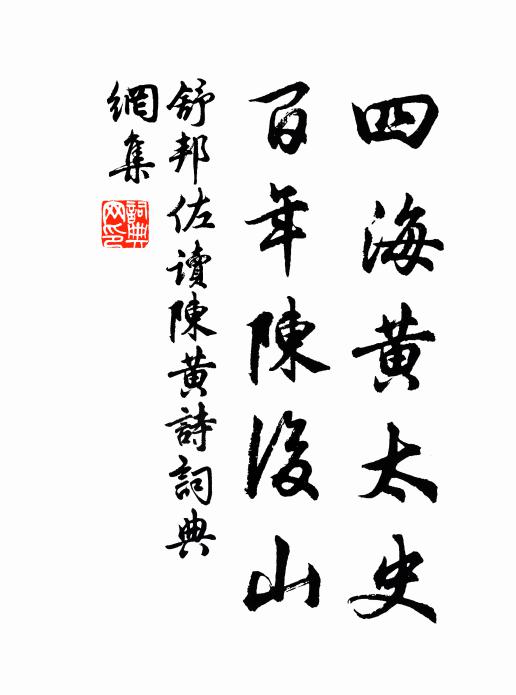 四海黄太史
百年陳後山
舒邦佐讀陳黄詩詞典
網集
詞典
网印